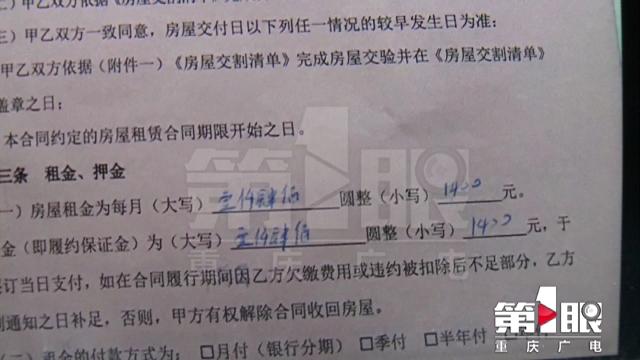 二）甲乙双方依据《房屋交割清单
三）甲乙双方一致同意，房屋交付日以下列任一情况的较早发生日为准：
甲乙双方依据（附件一）《房屋交割清单》完成房屋交验并在《房屋交割清单》
盖章之日；
本合同约定的房屋租赁合同期限开始之日。
三条 租金、押金
一）房屋租金为每月（大写）壹仟肆佰圆整（小写）1400元。
金（即履约保证金）为（大写）壹仟肆佰圆整（小写）1400元，于
订当日支付，如在合同履行期间因乙方欠缴费用或违约被扣除后不足部分，乙方
到通知之日补足，否则，甲方有权解除合同收回房屋。
（二）租金的付款方式为：□月付（银行分期）□季付 □半年付
第1眼
重庆广电
第1眼
重庆广电